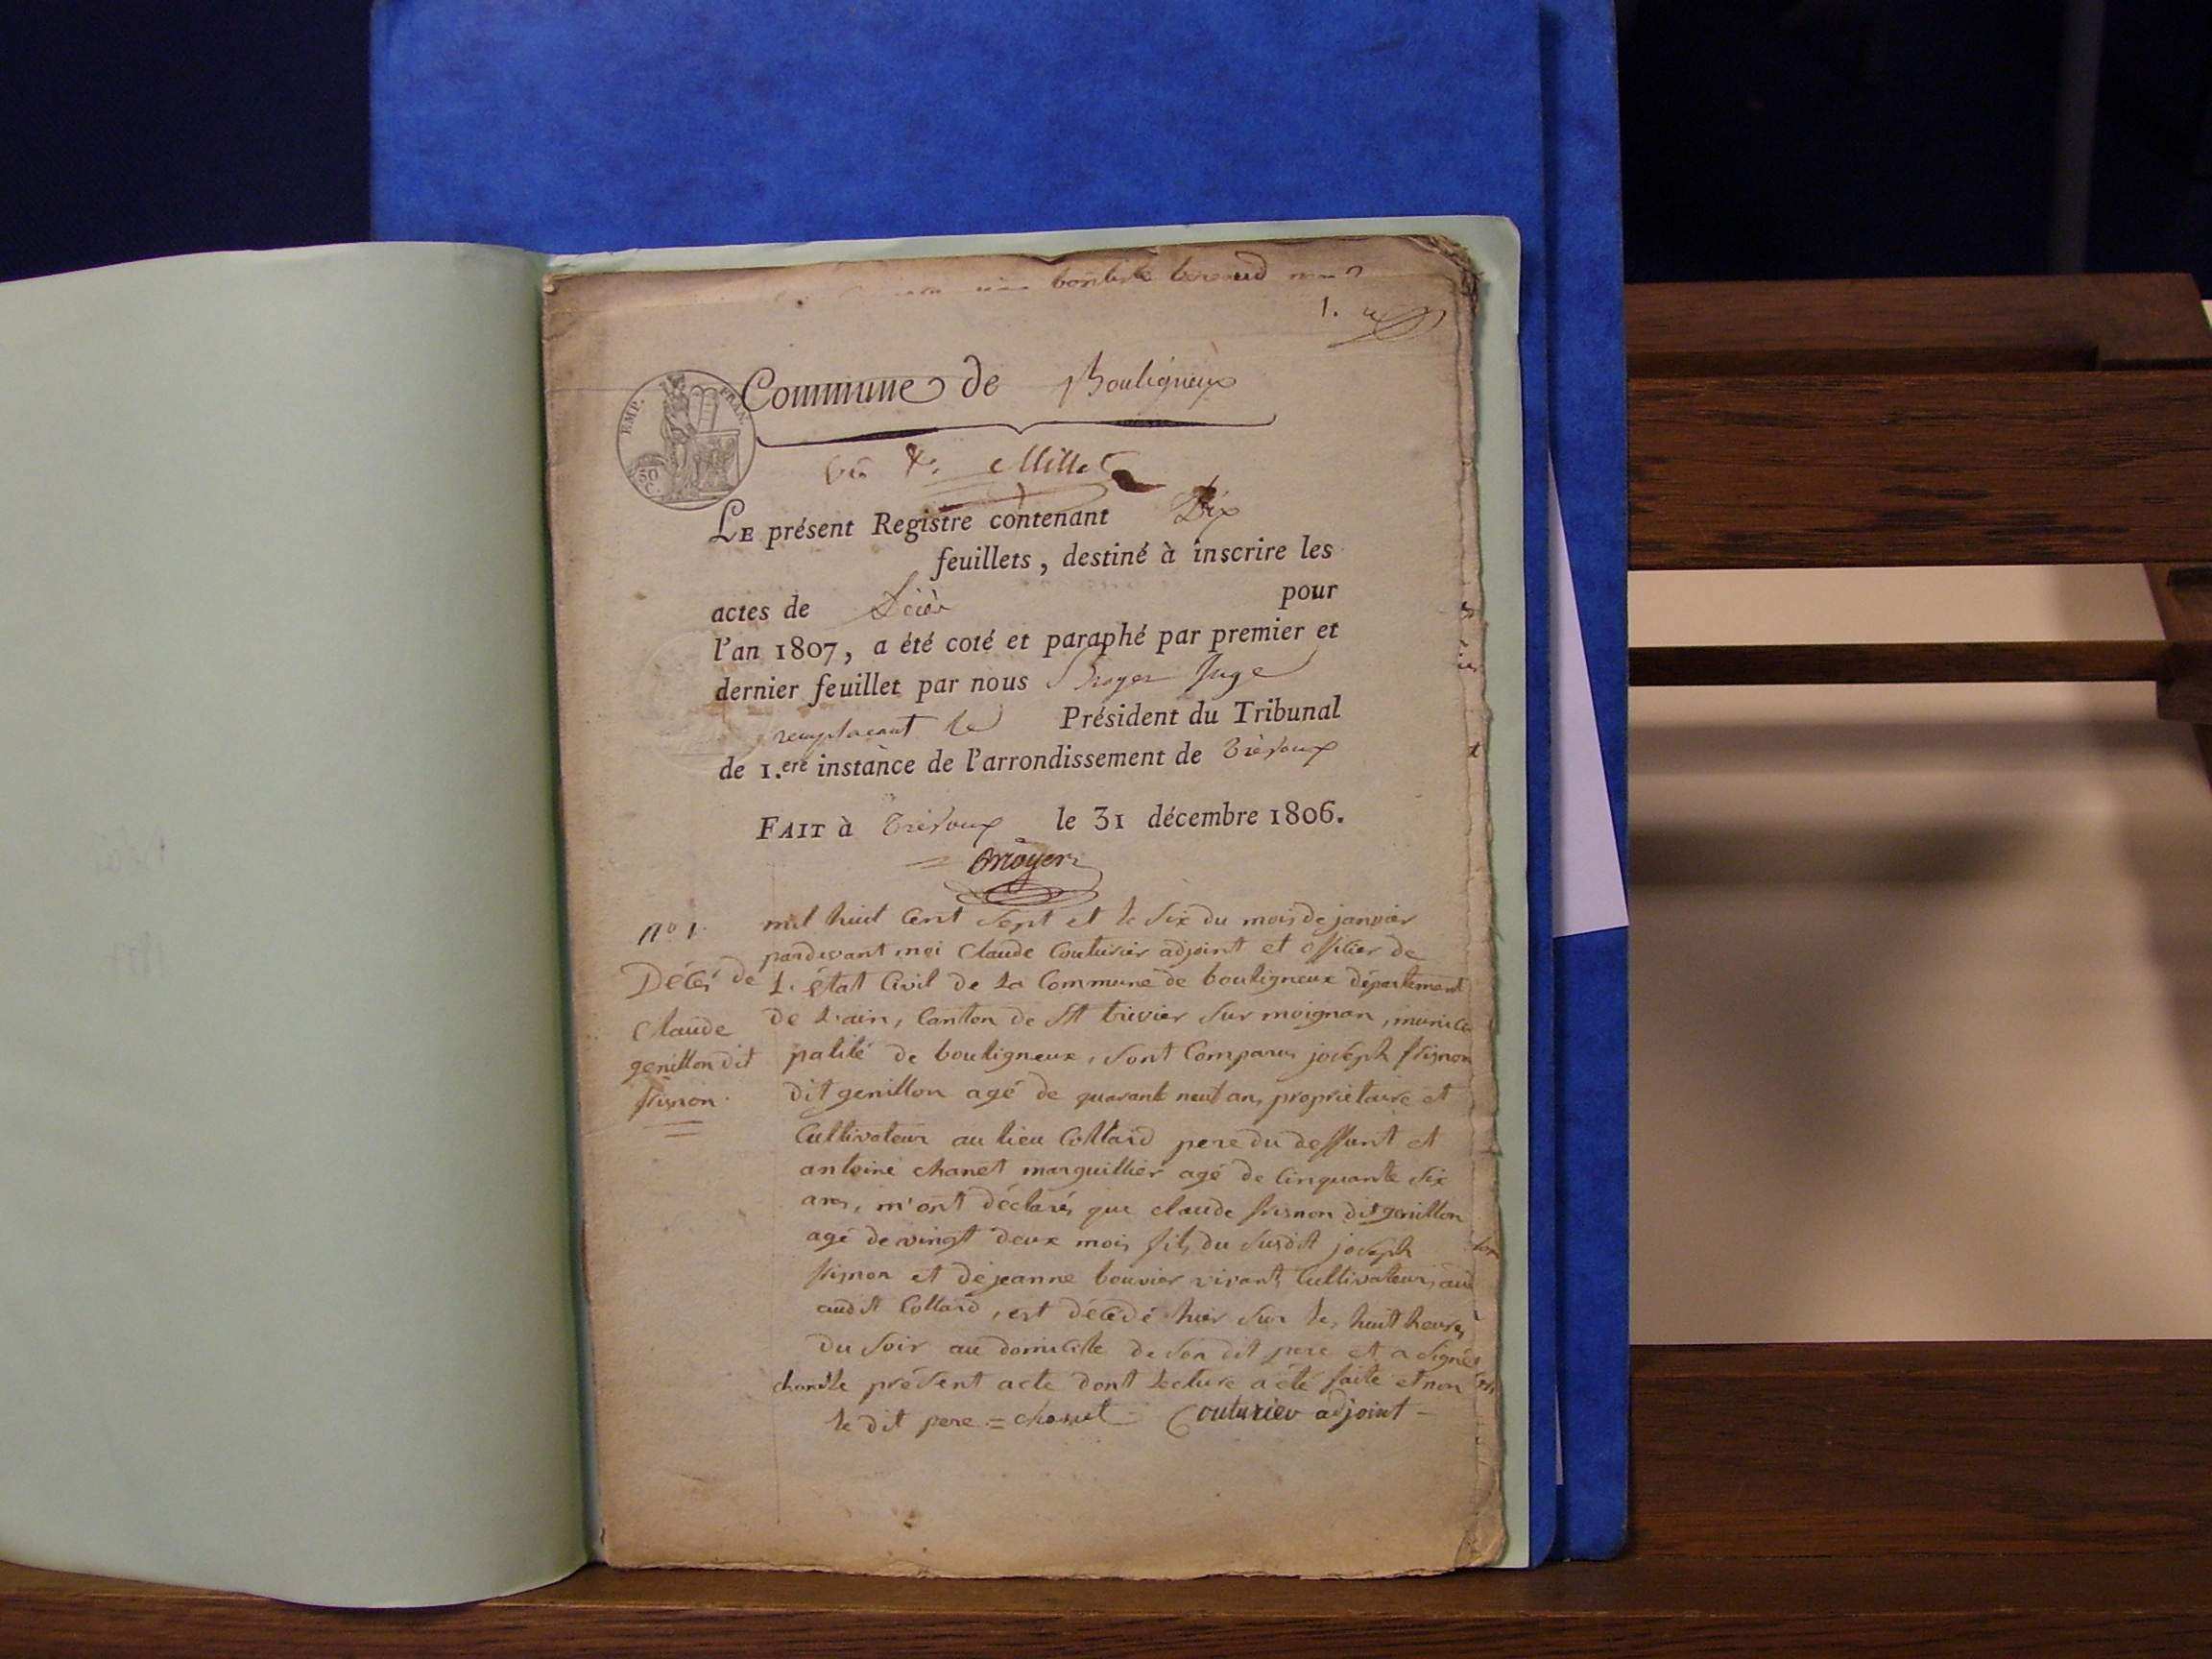 bontiste beraud
1.
EMP. FRAN.
50 C.
Commune de Bouligneux
Vu Millet
LE présent Registre contenant Dix
feuillets, destiné à inscrire les
actes de Décès pour
l'an 1807, a été coté et paraphé par premier et
dernier feuillet par nous Juge
remplacant le Président du Tribunal
de 1.ere instance de l'arrondissement de Trévoux
FAIT à Trévoux le 31 décembre 1806.
nº 1.
Décés de
Claude
genillon dit
frignon
mil huit Cent Sept et le Six du mois de janvier
pardevant moi Claude Couturier adjoint et officier de
L'état Civil de La Commune de bouligneux département
de L'ain, Canton de St trivier Sur moignan, munici
palité de bouligneux, Sont Comparus joseph frignon
dit genillon agé de quarante neuf ans, propriétaire et
Cultivateur au lieu Collard pere du deffunt et
antoine chanet marguillier agé de Cinquante Six
ans, m'ont déclarés que claude frignon dit genillon
agé de vingt deux mois fils du Susdit joseph
frignon et de jeanne bouvier vivants Cultivateurs
audit Collard, est décédé hier Sur les huit heures
du Soir au domicille de Son dit pere et a Signé
le présent acte dont Lecture a été faite et non
le dit pere = chanet Couturier adjoint